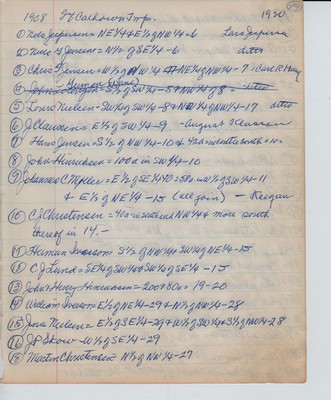 1908 Ft Calhoun Twp. 1920
① Nels Jespersen = NE¼ & E½ of NW¼-6 Lars Jespersen
② Niels G Jensen = N½ of SE¼-6 ditto
③ Chris Jensen = W½ of NW¼ of NW¼-7
④ SW¼-5 & NW¼ of 8 = ditto
⑤ Louis Nielsen = SW¼ of SW¼-8 & NW¼ of NW¼-17 ditto
⑥ J. Clausen = E½ of SW¼-9 - August Clausen
⑦ Hans Jensen = S½ of NW¼-10 & 40a
⑧ John Hinrichsen = 100a in SW¼-10
⑨ Johannes C Moller = E½ of SE¼-10 = in SW¼-11
& E½ of NE¼-15 (all join) - Keegan
⑩ C J Christensen = 40a in south end NW¼ & more south
thereof in 14. -
⑪ Herman Iverson S½ of NW¼ & SW¼ of NE¼-15
⑫ C J Lund = SE¼ of SW¼ & SW¼ of SE¼-15
⑬ John Henry Hinrichsen = 200 & 80a = 19-20
⑭ William Iverson = E½ of NE¼-29 & N½ of NW¼-28
⑮ Jens Nielsen = E½ of SE¼-29 & W½ of SW¼ & S½ of NW¼-28
⑯ J P Skow - W½ of SE¼-29
⑱ Martin Christensen - N½ of NW¼-27